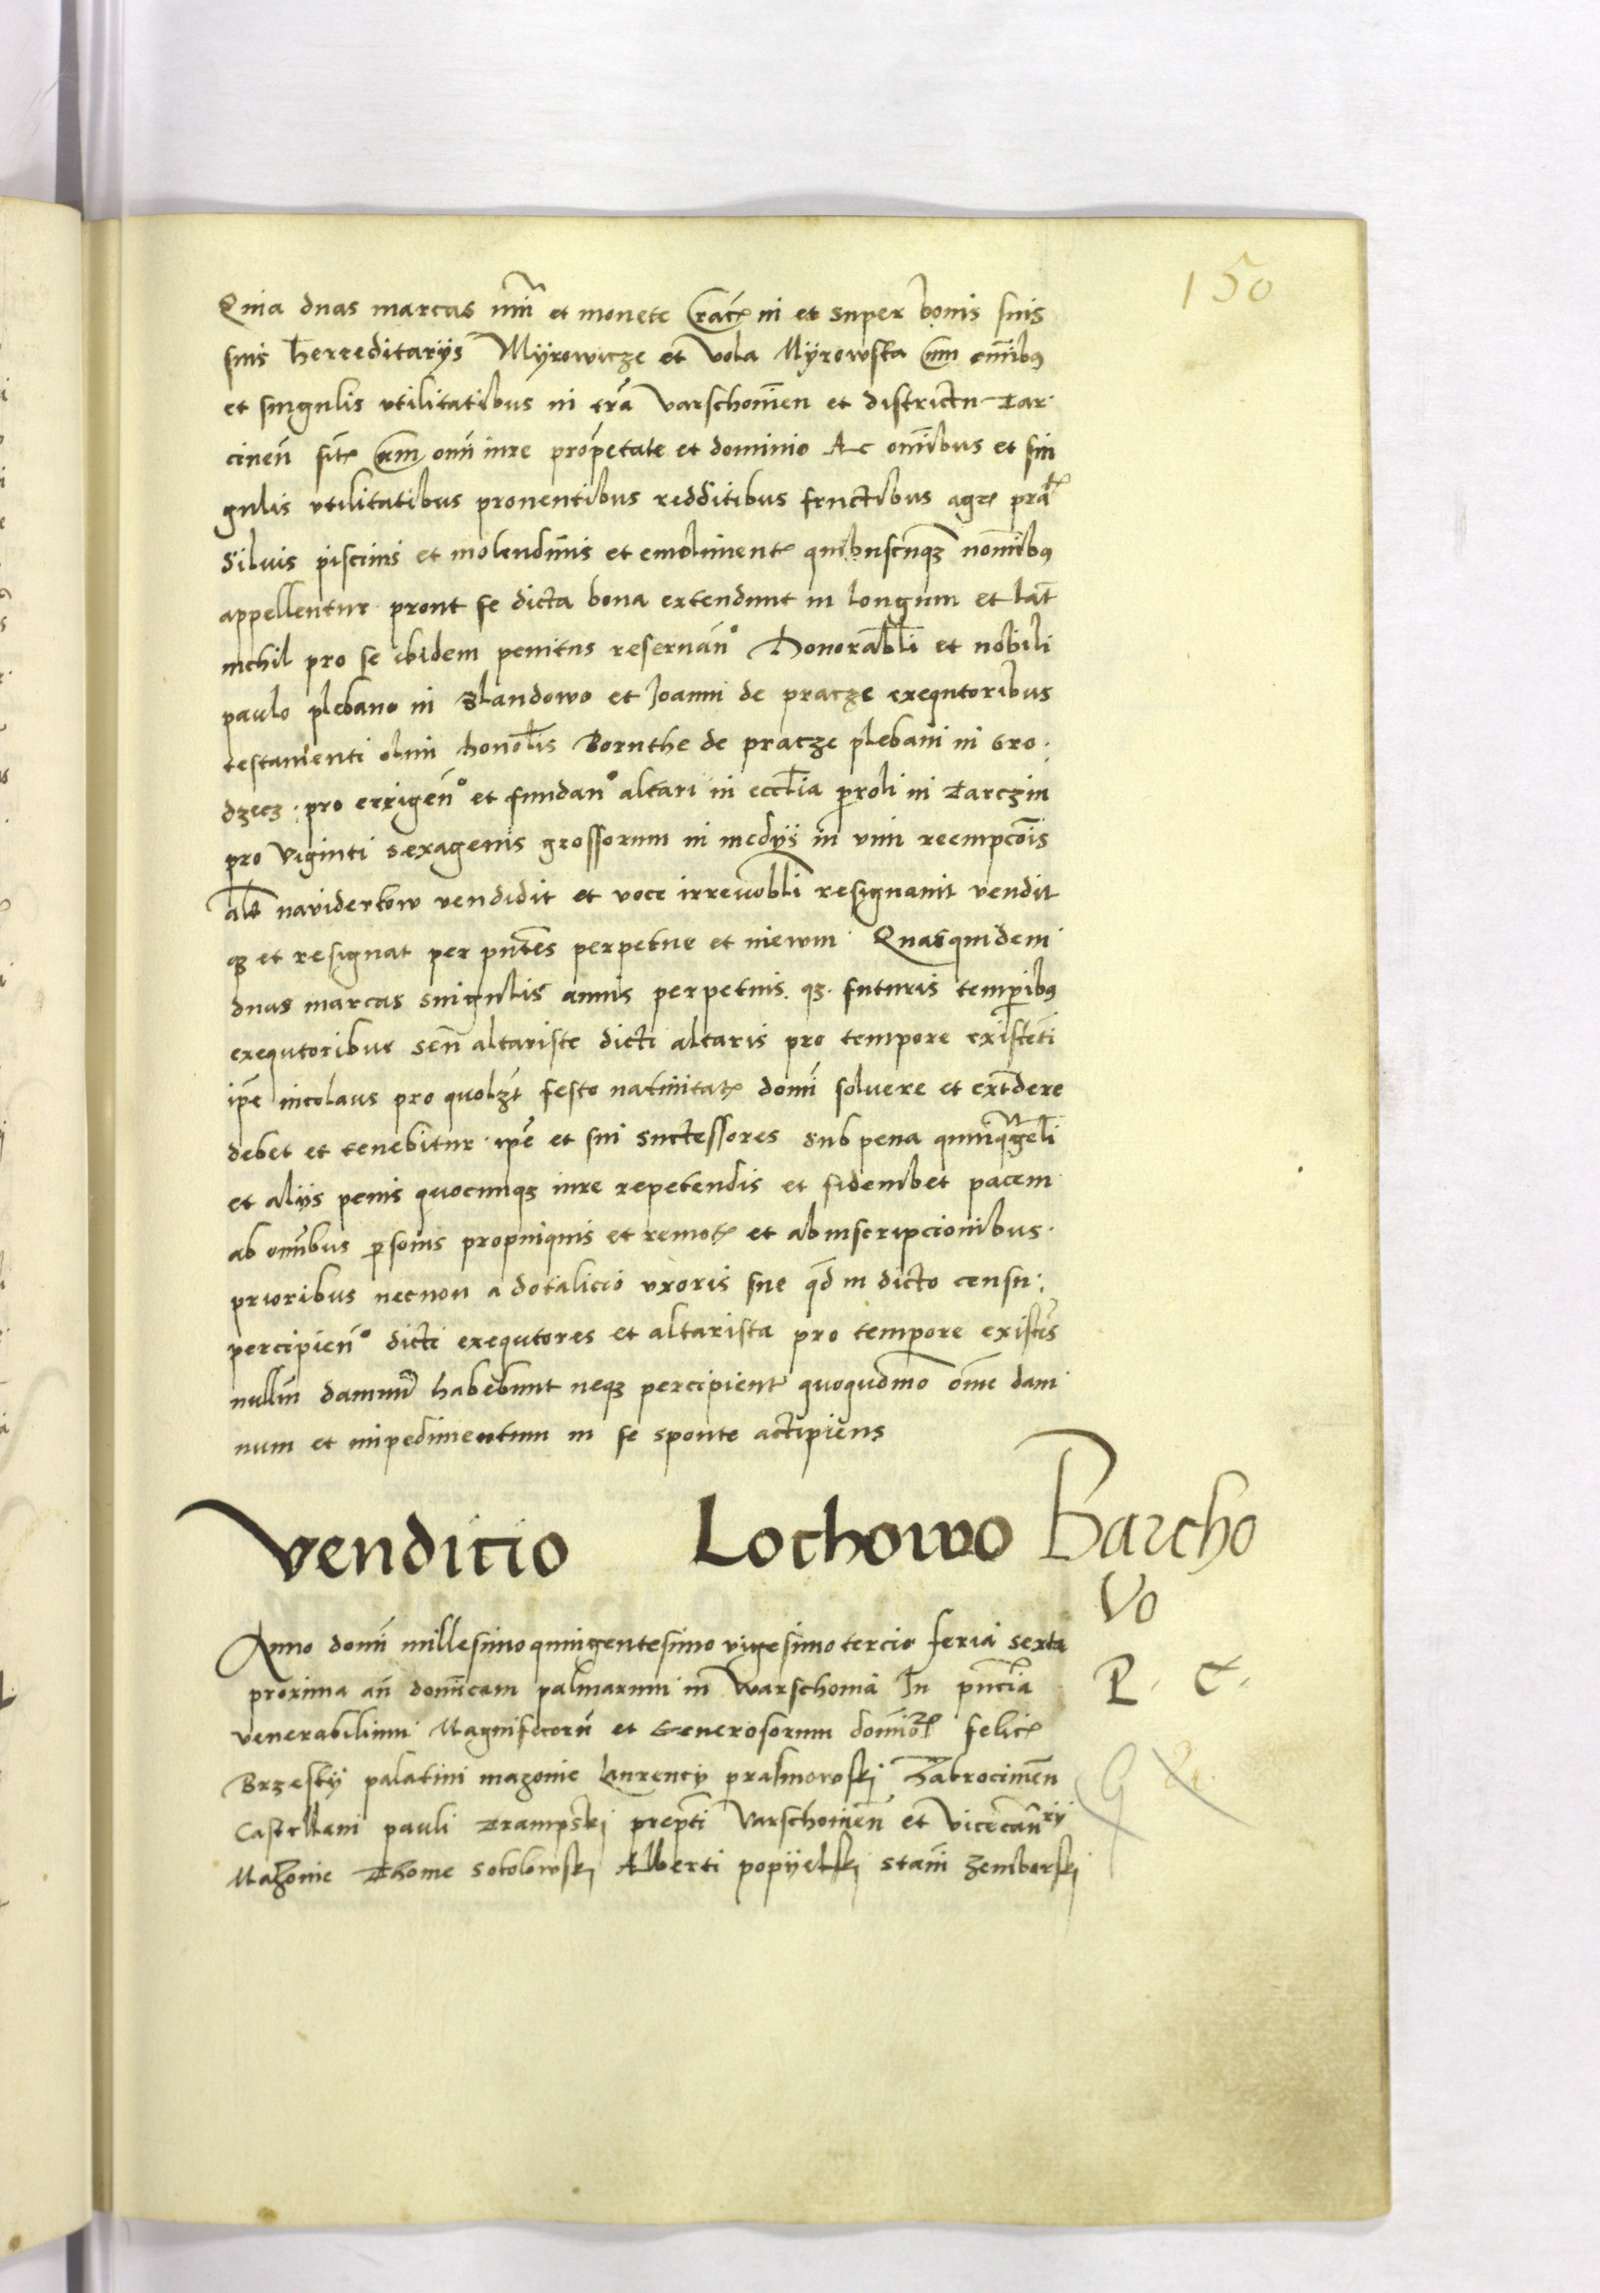 150
Quia duas marcas nu͞m et monete in et super bonis suis
suis herreditarÿs Mÿrowicze et Vola Mÿrowska cum om͞ibus
et singulis vtilitatibus in tr͞a Varschouien͞ et districtu Tar
cinen͞ cum om͞i iure prop͞etate et dominio Ac om͞ibus et sin
gulis vtilitatibus prouentibus redditibus fructibus agr͞ pra͞
Siluis piscinis et molendinis et emolument͞ quibuscunqꝫ nom͞ibus
appellentur prout se dicta bona extendunt in longum et lat͞
nichil pro se ibidem penitus reseruan͞º Honorab͞li et nobili
paulo plebano in Slandowo et Joanni de pracze exequtoribus
testamenti olim honol͞is Boruthe de pracze plebani in Gro
dzecz pro errigen͞º et fundan͞º altari in eccl͞ia p͞roli in Tarczin
pro viginti sexagenis grossorum in medÿs in vim reempco͞is
al͞s naviderkow vendidit et voce irreuob͞li resignauit vendit
qꝫ et resignat per pn͞tes perpetue et in ewm Quasquidem
duas marcas singulis annis perpetuis qꝫ futuris temp͞ibus
exequtoribus seu͞ altariste dicti altaris pro tempore existen͞ti
ip͞e nicolaus pro quolꝫt festo natiuitat͞ dom͞i soluere et ext͞dere
debet et tenebitur ip͞e et sui suctessores sub pena
et alÿs penis quocunqꝫ iure repetendis et pacem
ab om͞ibus p͞sonis propinquis et remot͞ et ab inscripcionibus
prioribus necnon a dotalicio vxoris sue q͞d in dicto censu
percipien͞º dicti exequtores et altarista pro tempore existe͞s
nullu͞ damnu͞ habebunt neqꝫ percipient quoqudmo om͞e dam
num et impedimentum in se sponte actipiens
Venditio Lochowo Barcho
Vo
Anno domi͞ millesimo quingentesimo vigesimo tercio feria sexta
proxima an͞ domi͞cam palmarum in Warschouia In pn͞cia
P. C.
venerabilium Magnificoru͞ et Generosorum domi͞or͞ felic͞
Brzeskÿ palatini mazouie laurencÿ prasmowskj Zatrocimen͞
Castellani pauli Trampskj prep͞ti Varschouien͞ et Vicecan͞rÿ
Mazouie Thome sokolowskj Alberti popÿelskj stani͞ zemborskj